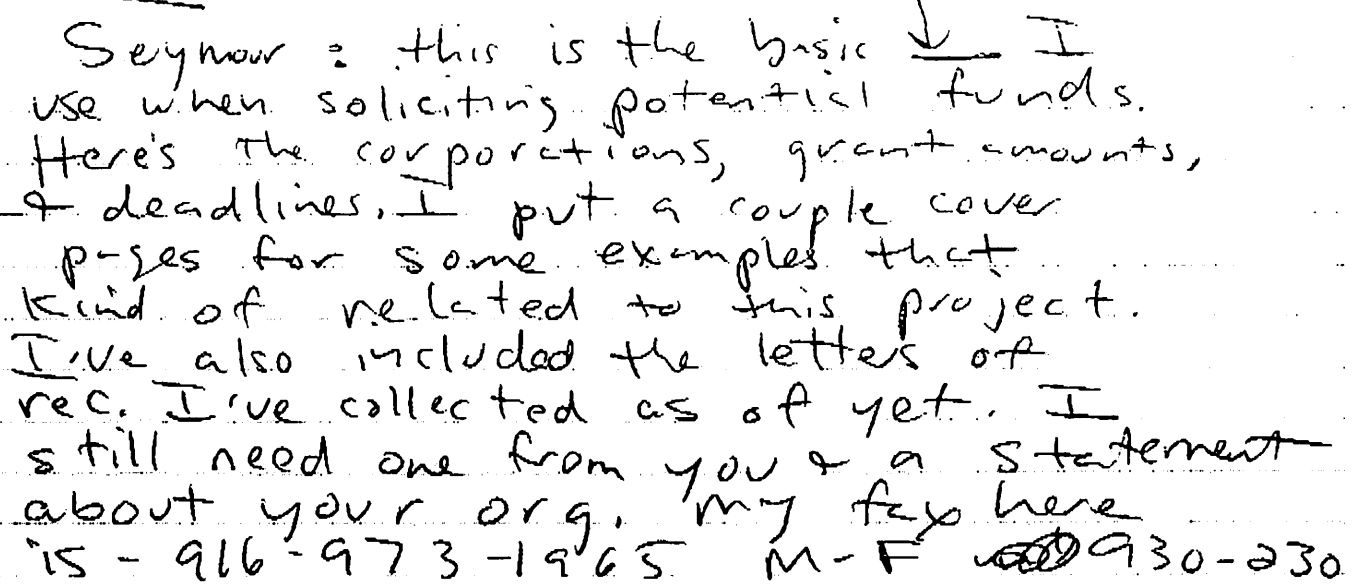 Seymour : this is the basic ↓ I
use when soliciting potential funds.
Here's the corporations, grant amounts,
& deadlines. I put a couple cover
pages for some examples that
kind of related to this project.
I've also included the letters of
rec. I've collected as of yet. I
still need one from you & a statement
about your org. My fax here
is - 916-973-1965 M-F 930-230